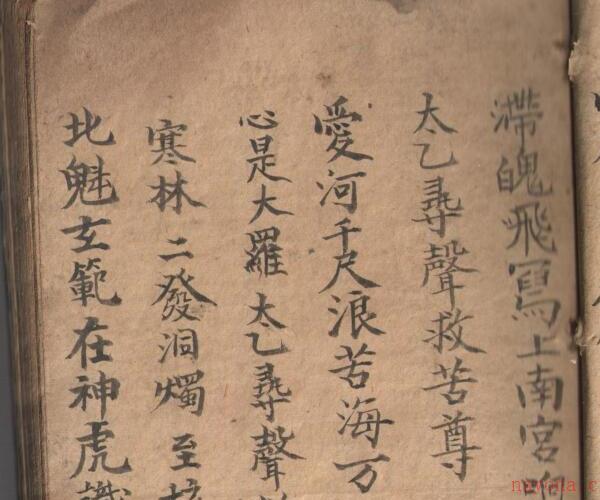 滯魄飛駕上南宮
太乙尋聲救苦尊
愛河千尺浪苦海万
心是大羅太乙尋聲
寒林二發洞燭至
北魁玄範在神虎識